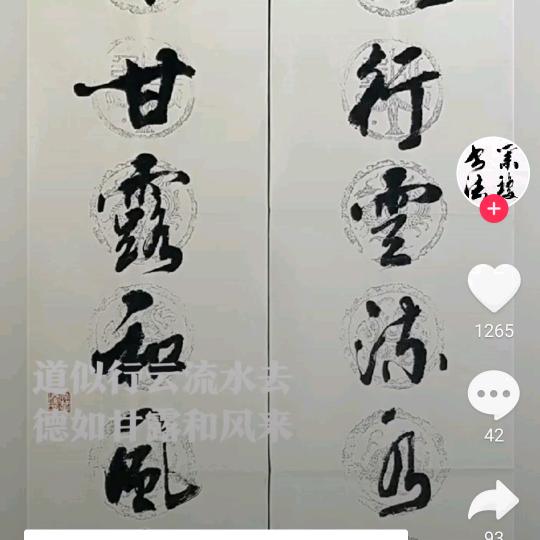 行雲流水
甘露和風
道似行云流水去
德如甘露和风来
1265
42
93